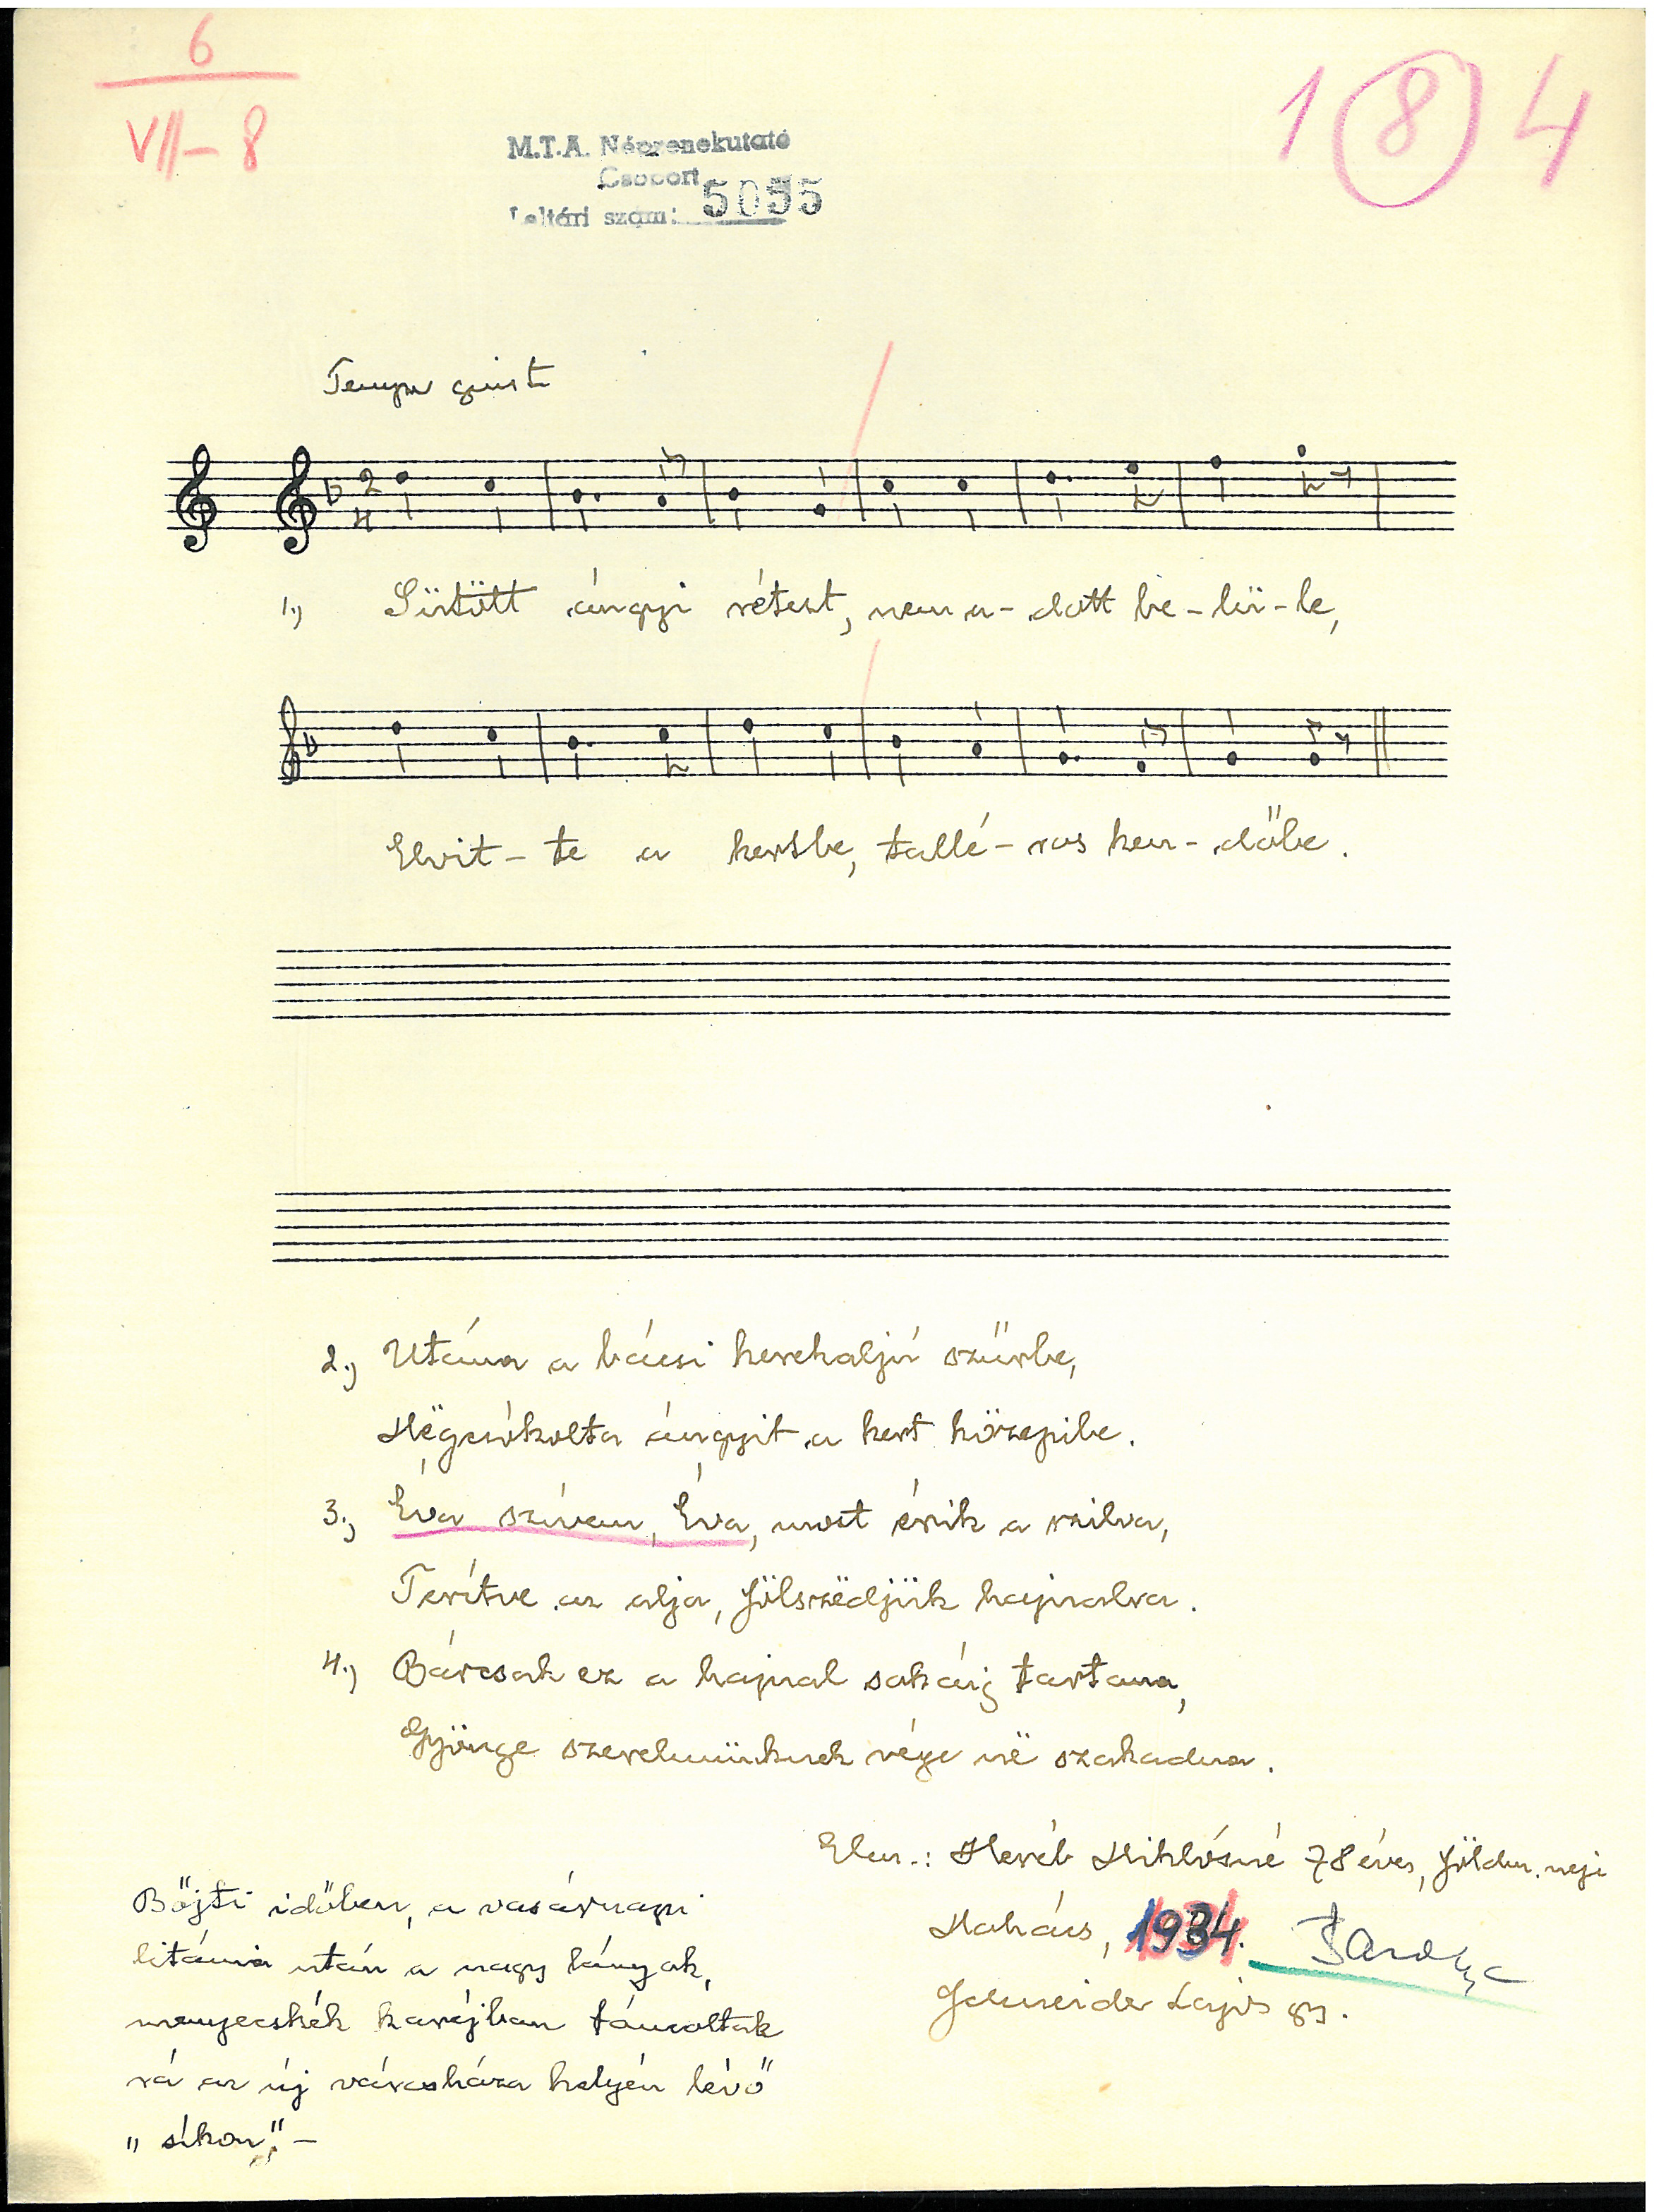 6
VII-8
1 8 4
M.T.A. Népzenekutató
Csoport
Leltári szám: 5055
Tempo giusto
2
4
1.) Sütött ángyi rétest, nem a-dott be-lü-le,
Elvit-te a kertbe, tallé-ros ken-dőbe.
2.) Utána a bácsi kerekaljú szűrbe,
Mëgcsókolta ángyit a kert közepibe.
3.) Éva szívem, Éva, most érik a szilva,
Terítve az alja, fölszëdjük hajnalra.
4.) Bárcsak ez a hajnal sokáig tartana,
Gyönge szerelmünknek vége në szakadna.
Elm.: Heréb Miklósné 78 éves, földm. neje
Mohács, 1934.
Schneider Lajos gy.
Bőjti időben, a vasárnapi
litánia után a nagy lányok,
menyecskék karéjban táncoltak
rá az új városháza helyén lévő
"síkon". -